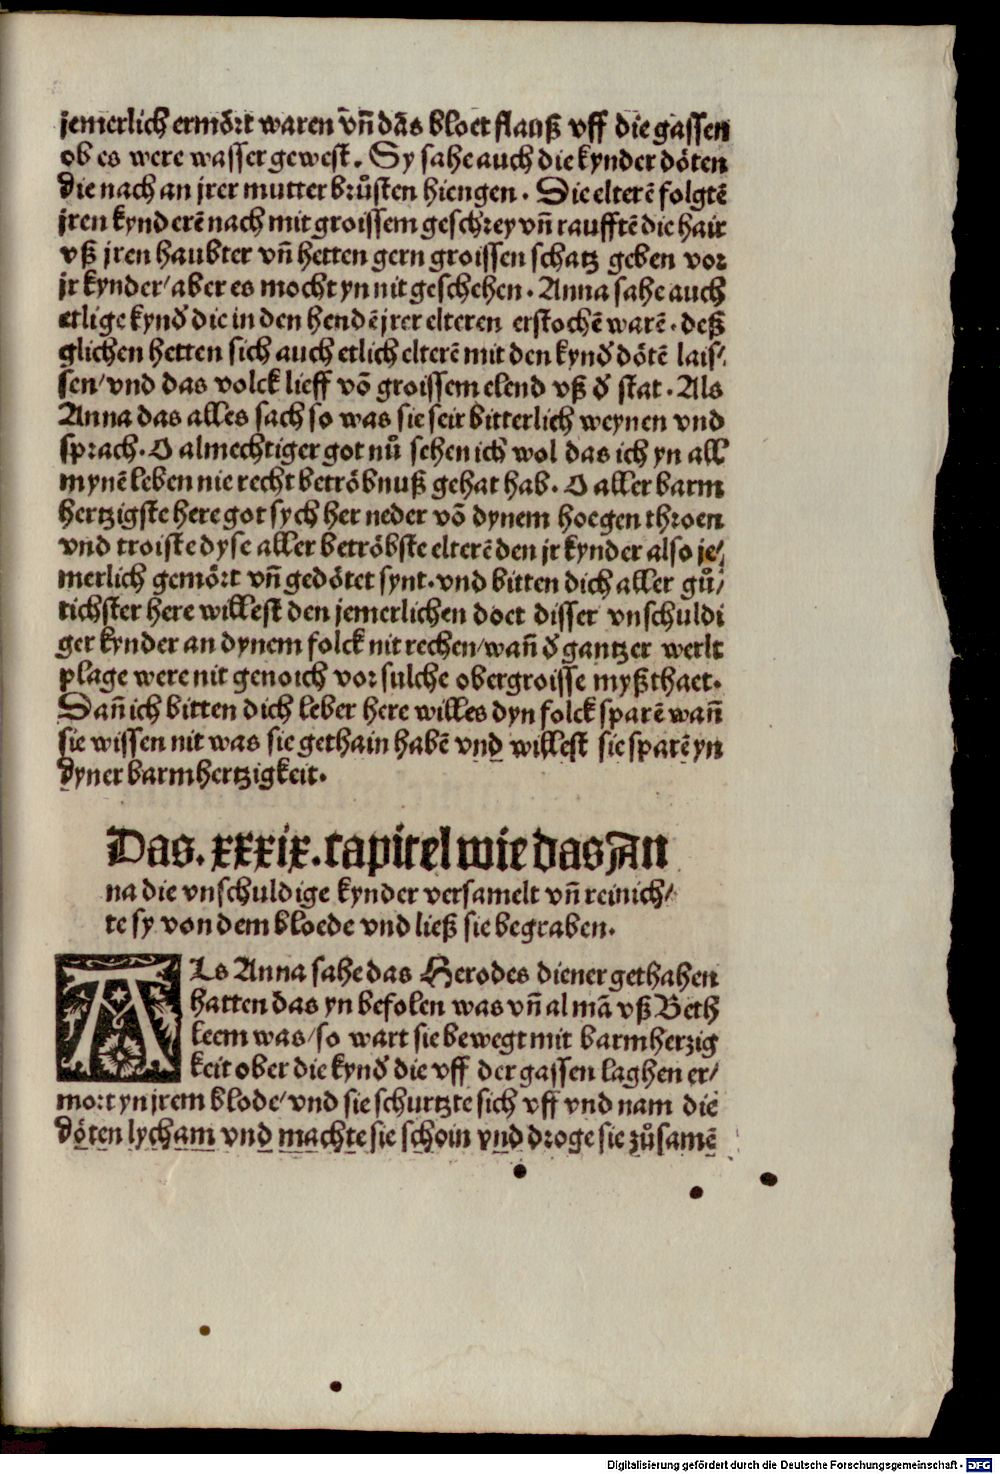 jemerlich ermört waren vn̄ dās bloet flauß vff die gassen
ob es were wasser gewest. Sy sahe auch die kynder döten
die nach an jrer mutter brůsten hiengen. Die elterē folgtē
jren kynderē nach mit groissem geschrey vn̄ raufftē die hair
vß jren haubter vn̄ hetten gern groissen schatz geben vor
jr kynder/ aber es mocht yn nit geschehen. Anna sahe auch
etlige kynď die in den hendē jrer elteren erstochē warē. deß
glichen hetten sich auch etlich elterē mit den kynď dötē lais/
sen/ vnd das volck lieff vō groissem elend vß ď stat. Als
Anna das alles sach so was sie seir bitterlich weynen vnd
sprach. O almechtiger got nů sehen ich wol das ich yn all
mynē leben nie recht betröbnuß gehat hab. O aller barm
hertzigste here got sych her neder vō dynem hoegen throen
vnd troiste dyse aller betröbste elterē den jr kynder also je/
merlich gemört vn̄ gedötet synt. vnd bitten dich aller gů/
tichster here willest den jemerlichen doet disser vnschuldi
ger kynder an dynem folck nit rechen/ wan̄ ď gantzer werlt
plage were nit genoich vor sulche obergroisse myßthaet.
Dan̄ ich bitten dich leber here willes dyn folck sparē wan̄
sie wissen nit was sie gethain habē vnd willest sie sparē yn
dyner barmhertzigkeit.
Das. xxxix. capitel wie das An
na die vnschuldige kynder versamelt vn̄ reinich/
te sy von dem bloede vnd ließ sie begraben.
ALs Anna sahe das Herodes diener gethahen
hatten das yn befolen was vn̄ al mā vß Beth
leem was/ so wart sie bewegt mit barmherzig
keit ober die kynď die vff der gassen laghen er/
mort yn jrem blode/ vnd sie schurtzte sich vff vnd nam die
döten lycham vnd machte sie schoin vnd droge sie zůsamē
Digitalisierung gefördert durch die Deutsche Forschungsgemeinschaft - DFG